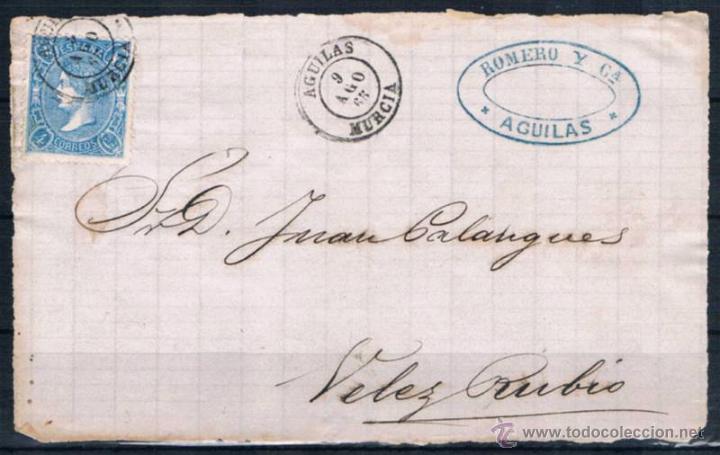 ESPAÑA
4 CS
CORREOS
MURCIA
AGUILAS
9
AGO
65
MURCIA
ROMERO Y CA
* AGUILAS *
Sr. D. Juan Calangues
Velez Rubio
www.todocoleccion.net